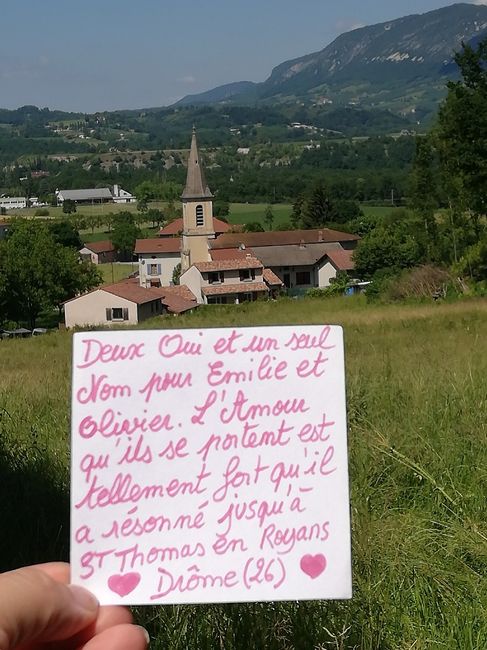 Deux Oui et un seul
Nom pour Emilie et
Olivier. L'Amour
qu'ils se portent est
tellement fort qu'il
a résonné jusqu'à
ST Thomas en Royans
Drôme (26)